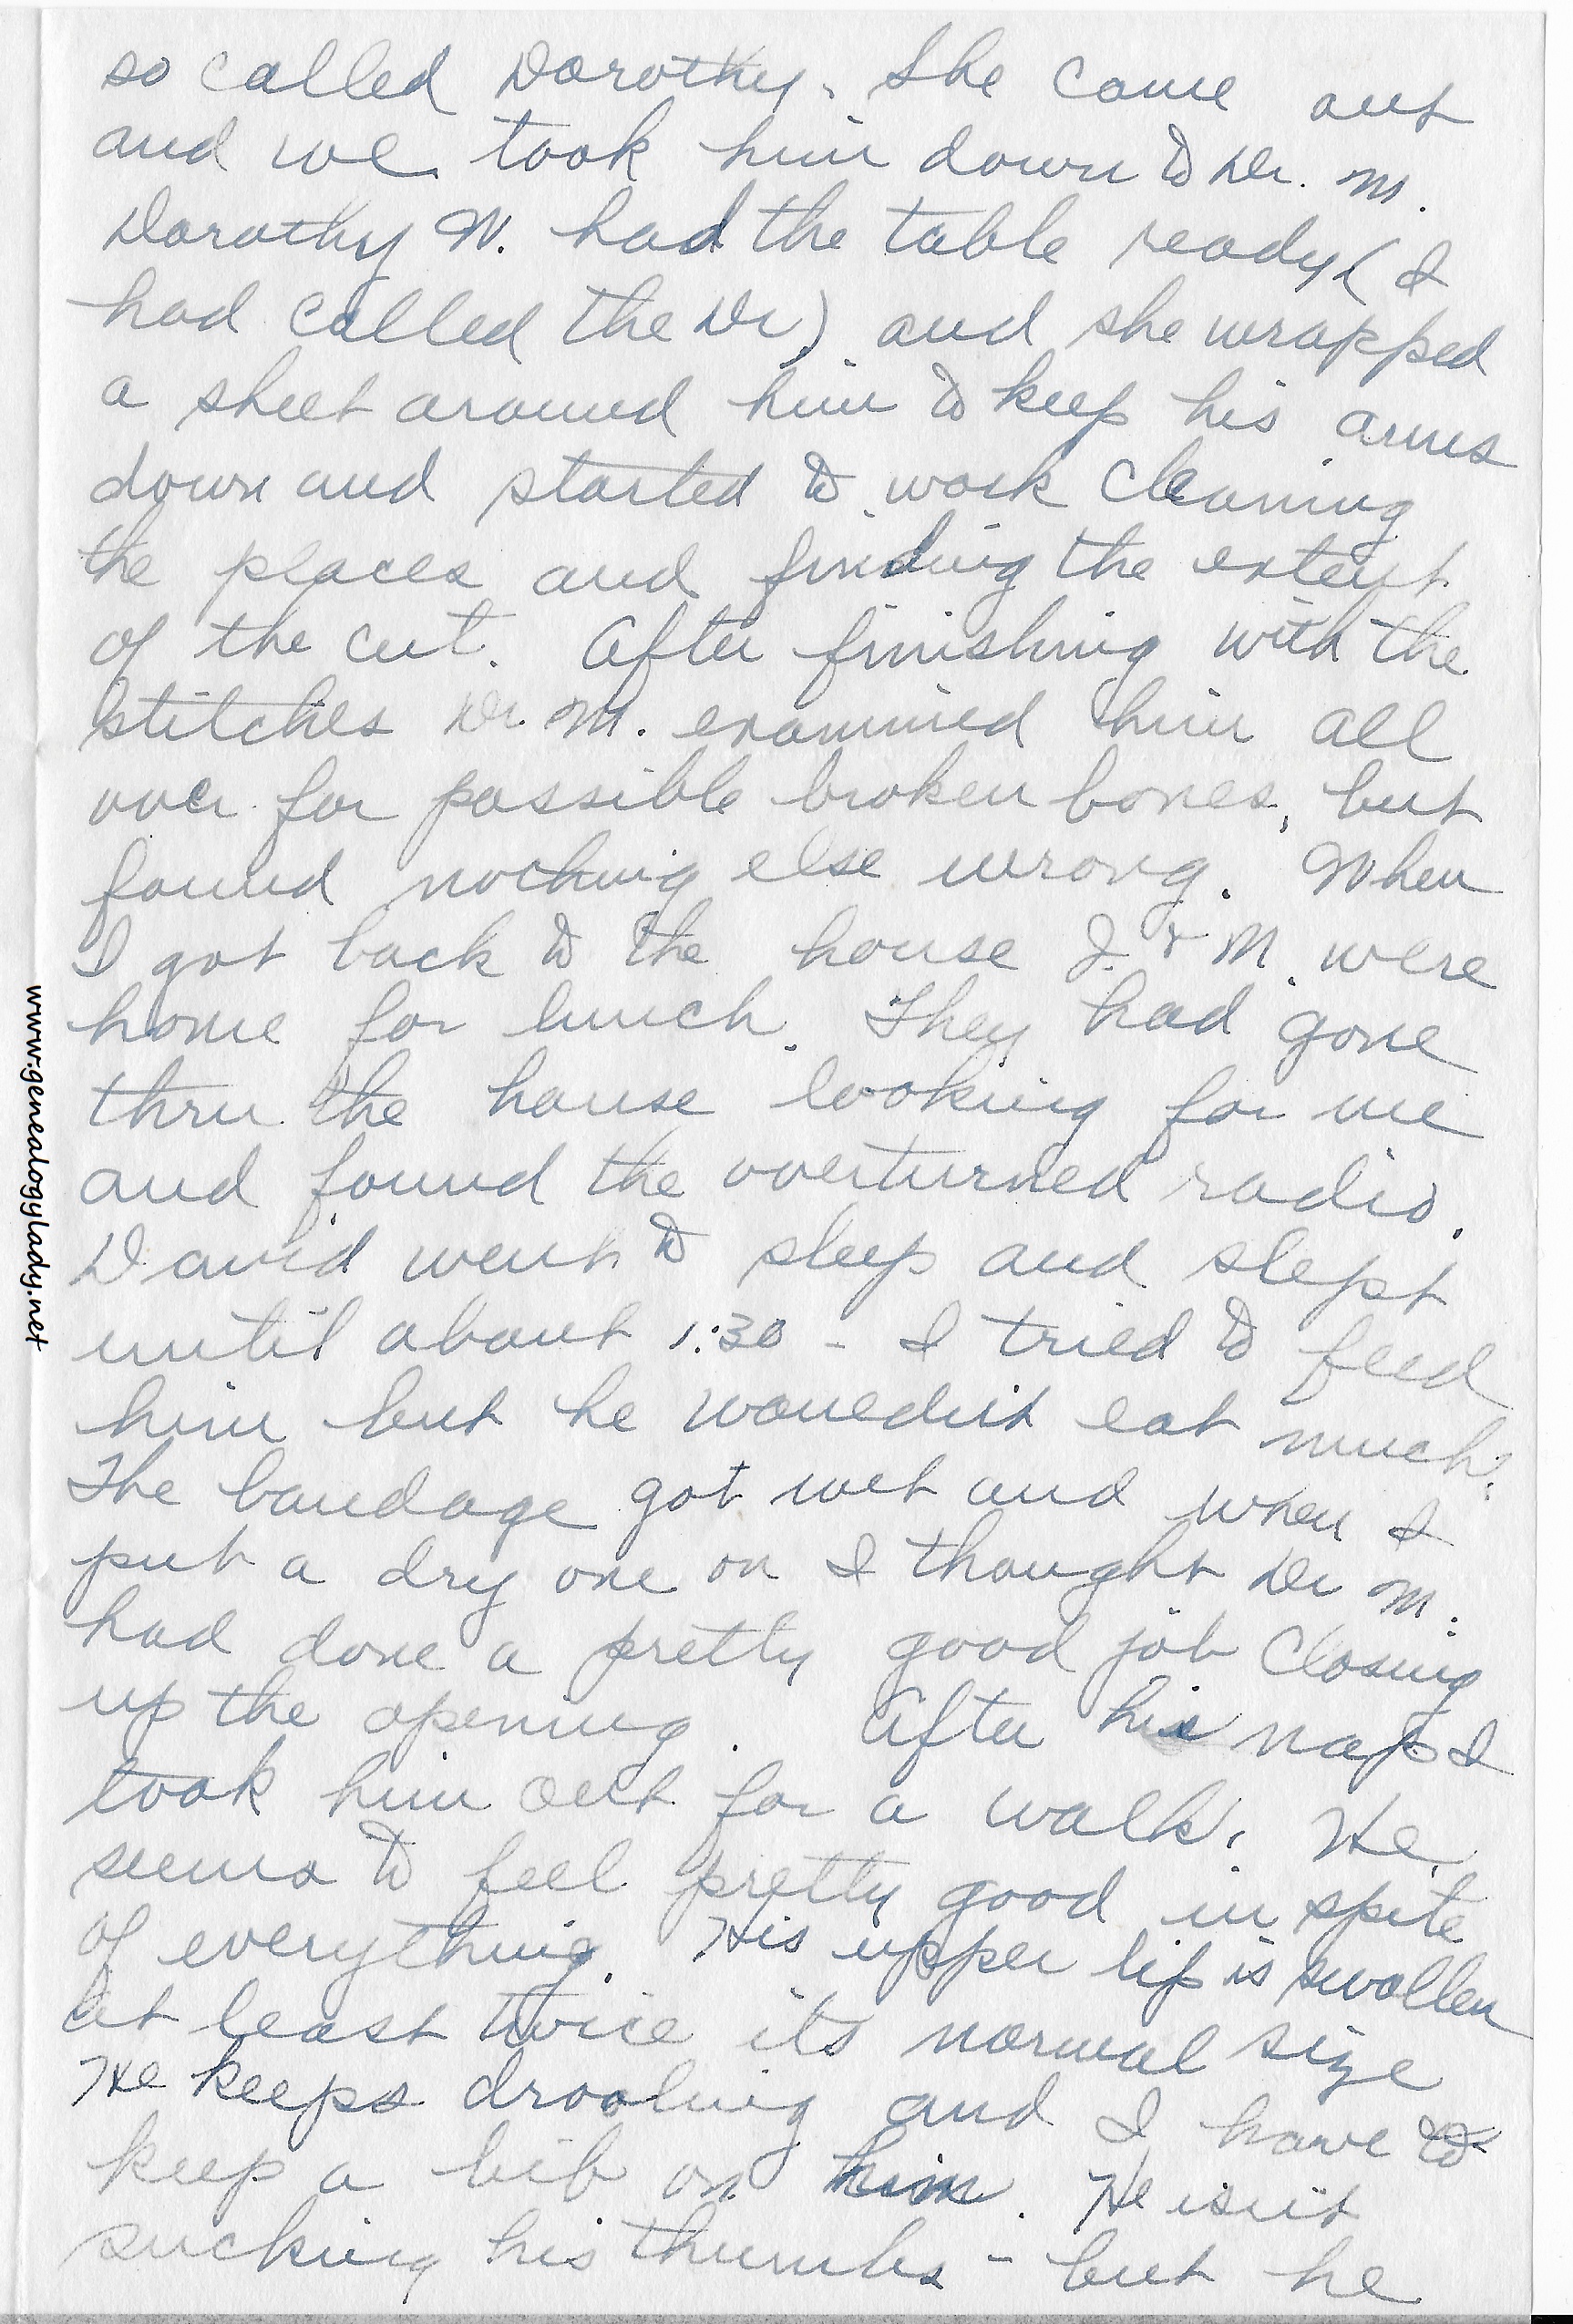 so called Dorothy. She came out
and we took him down to Dr. M.
Dorothy W. had the table ready (I
had called the Dr) and she wrapped
a sheet around him to keep his arms
down and started to work cleaning
the places and finding the extent
of the cut. After finishing with the
stitches Dr M. examined him all
over for possible broken bones, but
found nothing else wrong. When
I got back to the house J. & M. were
home for lunch. They had gone
thru the house looking for me
and found the overturned radio.
David went to sleep and slept
until about 1:30 - I tried to feed
him but he wouldn't eat much.
The bandage got wet and when I
put a dry one on I thought Dr M.
had done a pretty good job closing
up the opening. After his nap I
took him out for a walk. He
seems to feel pretty good in spite
of everything. His upper lip is swollen
at least twice its normal size
He keeps drooling and I have to
keep a bib on him. He isn't
sucking his thumbs - but he
www.genealogylady.net